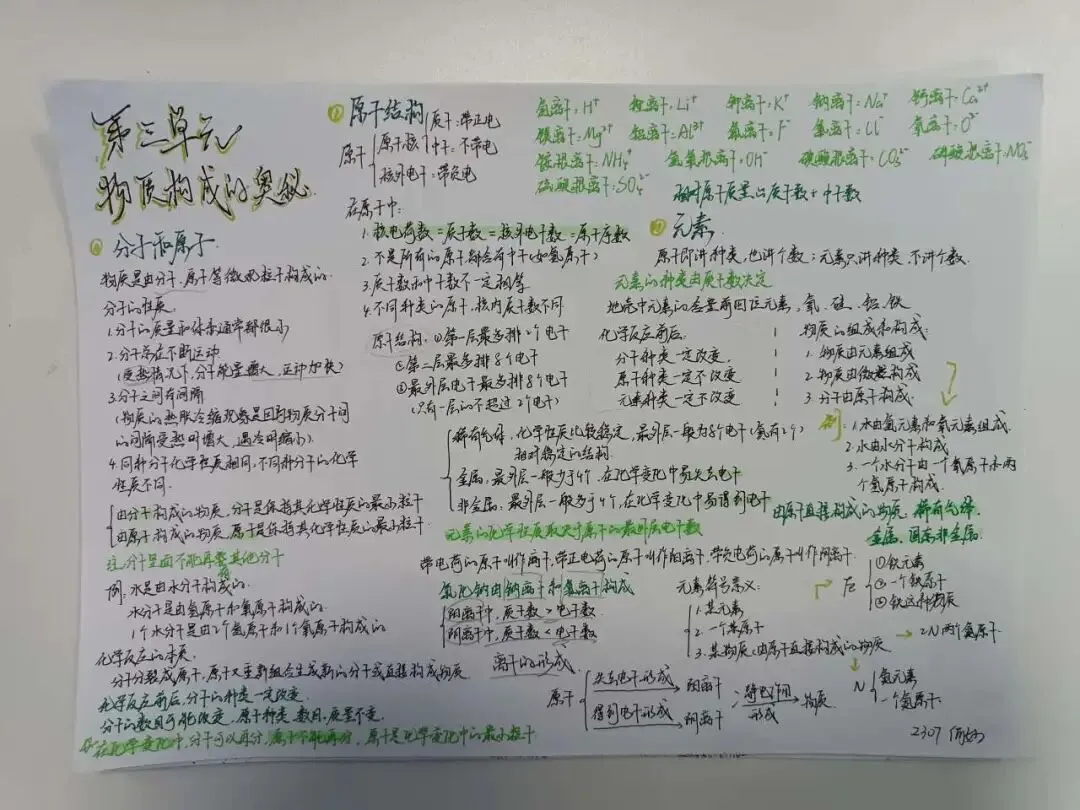 第三单元
物质构成的奥秘
① 分子和原子
物质是由分子、原子等微观粒子构成的.
分子的性质
1.分子的质量和体积通常都很小
2.分子总在不断运动
(受热情况下,分子能量增大,运动加快)
3.分子之间有间隔
(物质的热胀冷缩现象是因为物质分子间
的间隔受热时增大,遇冷时缩小)
4.同种分子化学性质相同,不同种分子的化学
性质不同.
由分子构成的物质,分子是保持其化学性质的最小粒子
由原子构成的物质,原子是保持其化学性质的最小粒子
注:分子里面不能再含其他分子
例:水是由水分子构成的.
水分子是由氢原子和氧原子构成的
1个水分子是由2个氢原子和1个氧原子构成的
化学反应的本质.
分子分裂成原子,原子又重新组合生成新的分子或直接构成物质
化学反应前后,分子的种类一定改变.
分子的数目可能改变,原子种类、数目、质量不变.
在化学变化中,分子可以再分,原子不能再分,原子是化学变化中的最小粒子
② 原子结构
原子
原子核
质子:带正电
中子:不带电
核外电子:带负电
在原子中:
1.核电荷数=质子数=核外电子数=原子序数
2.不是所有的原子都含有中子(如氢原子)
3.质子数和中子数不一定相等
4.不同种类的原子,核内质子数不同
原子结构:①第一层最多排2个电子
②第二层最多排8个电子
③最外层电子最多排8个电子
(只有一层的不超过2个电子)
稀有气体,化学性质比较稳定,最外层一般为8个电子(氦有2个)
相对稳定的结构.
金属,最外层一般少于4个,在化学变化中易失去电子
非金属,最外层一般多于4个,在化学变化中易得到电子
元素的化学性质取决于原子的最外层电子数
带电荷的原子叫作离子,带正电荷的原子叫作阳离子,带负电荷的原子叫作阴离子.
氯化钠由钠离子和氯离子构成
阴离子中,质子数>电子数
阴离子中,质子数<电子数
离子的形成.
原子
失去电子形成
阳离子
得到电子形成
阴离子
静电作用
形成
物质
氢离子:H⁺ 锂离子:Li⁺ 钾离子:K⁺ 钠离子:Na⁺ 钙离子:Ca²⁺
镁离子:Mg²⁺ 铝离子:Al³⁺ 氟离子:F⁻ 氯离子:Cl⁻ 氧离子:O²⁻
铵根离子:NH₄⁺ 氢氧根离子:OH⁻ 碳酸根离子:CO₃²⁻ 硝酸根离子:NO₃⁻
硫酸根离子:SO₄²⁻
相对原子质量≈质子数+中子数
③ 元素
原子即讲种类,也讲个数:元素只讲种类,不讲个数.
元素的种类由质子数决定
地壳中元素的含量前四位元素,氧、硅、铝、铁
化学反应前后:
分子种类一定改变,
原子种类一定不改变
元素种类一定不改变
物质的组成和构成:
1.物质由元素组成
2.物质由微粒构成
3.分子由原子构成.
例:1.水由氢元素和氧元素组成.
2.水由水分子构成
3.一个水分子由一个氧原子和两
个氢原子构成.
由原子直接构成的物质,稀有气体.
金属、固态非金属.
元素符号意义:
1.某元素
2.一个某原子
3.某物质(由原子直接构成的物质
Fe
①铁元素
②一个铁原子
③铁这种物质
→2N两个氮原子.
N
氮元素
一个氮原子.
2307